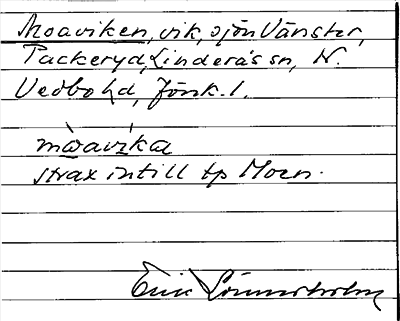 Moaviken, vik, sjön Vänster,
Packeryd, Linderås sn, N.
Vedbo hd, Jönk. l.
mòavíkα
strax intill tp Moen.
Erik